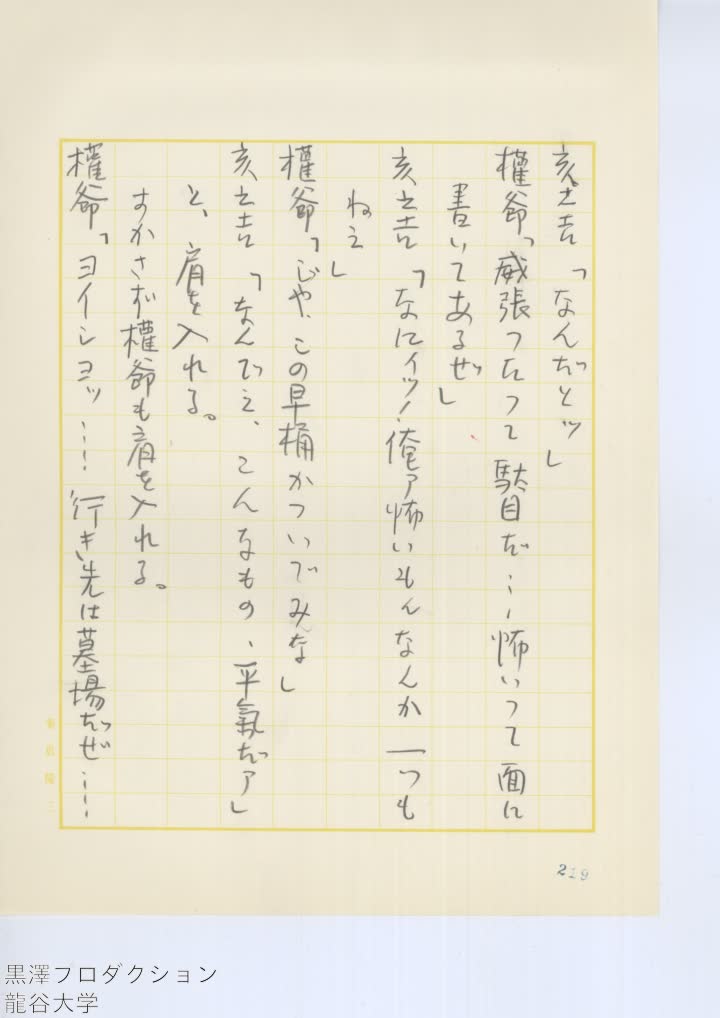 亥之吉「なんだとッ」
權爺「威張つたつて駄目だ……怖いつて面に
書いてあるぜ」
亥之吉「なにイッ！俺ア怖いもんなんか一つも
ねえ」
權爺「じや、この早桶かついでみな」
亥之吉「なんでえ、こんなもの、平氣だア」
と、肩を入れる。
すかさず權爺も肩を入れる。
權爺「ヨイショッ……行き先は墓場だぜ……
219
黒澤プロダクション
龍谷大学